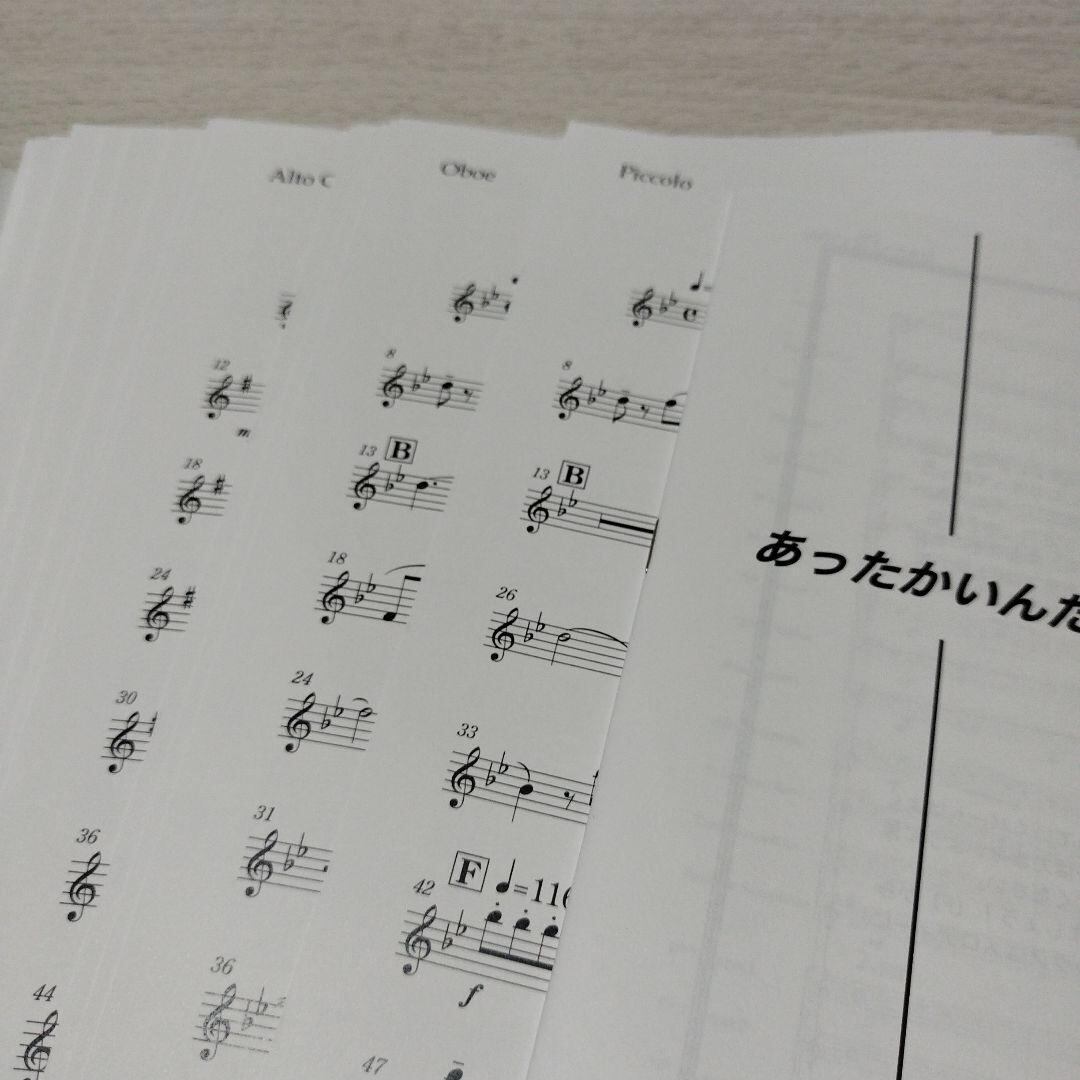 Alto C
Oboe
Piccolo
12
18
24
30
36
44
8
13 B
18
24
31
36
8
13 B
26
33
42 F =116
f
47
あったかいんだ